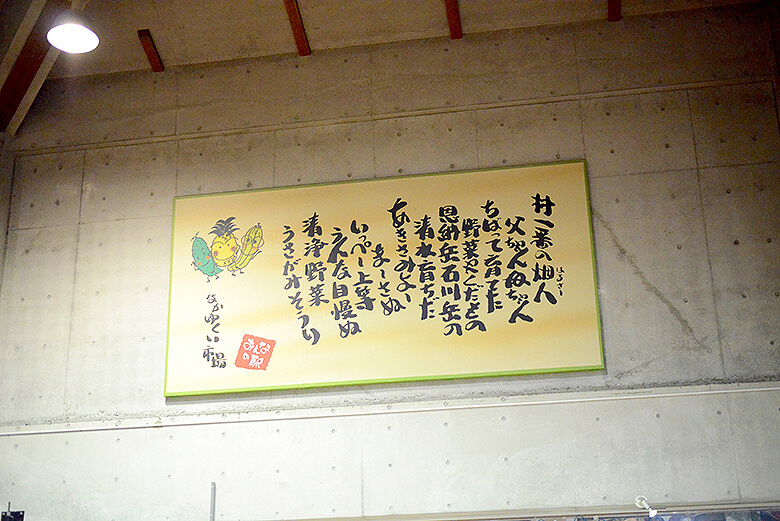 村一番の畑人
はるさー
父ちゃん母ちゃん
ちばって育てた
野菜やくだもの
恩納岳石川岳の
清水育ちだ
あきさみよー
まーさぬ
いっぺー上等
うんな自慢ぬ
清浄野菜
うさがみそうり
なかゆくい市場
おんなの駅